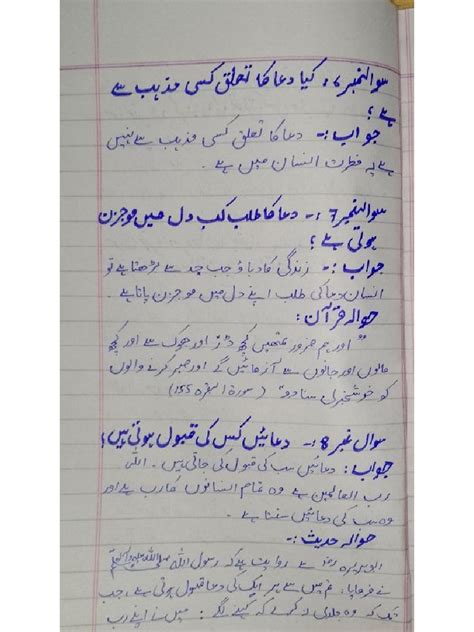 سوالنمبر 6: کیا دعا کا تعلق کسی مذہب سے
ہے ؟
جواب :- دعا کا تعلق کسی مذہب سے نہیں
ہے یہ فطرت انسان میں ہے ۔
سوالنمبر 7 :- دعا کا طلب کب دل میں موجزن
ہوتی ہے ؟
جواب :- زندگی کا دباؤ جب حد سے بڑھتا ہے تو
انسان دعا کی طلب اپنے دل میں موجزن پاتا ہے ۔
حوالہ قرآن :
" اور ہم ضرور تمھیں کچھ ڈر اور بھوک سے اور کچھ
مالوں اور جانوں سے آزمائیں گے اور صبر کرنے والوں
کو خوشخبری سنا دو" (سورۃ البقرہ 155)
سوال نمبر 8 :- دعائیں کس کی قبول ہوتی ہیں ؟
جواب : دعائیں سب کی قبول کی جاتی ہیں ۔ اللہ
رب العالمین ہے وہ تمام انسانوں کا رب ہے اور
وہ سب کی دعائیں سنتا ہے ۔
حوالہ حدیث :-
ابوہریرہ رضہ سے روایت ہے کہ رسول اللہ صلی اللہ علیہ وسلم
نے فرمایا : تم میں سے ہر ایک کی دعا قبول ہوتی ہے ، جب
تک کہ وہ جلدی نہ کرے کہ کہنے لگے : میں نے اپنے رب